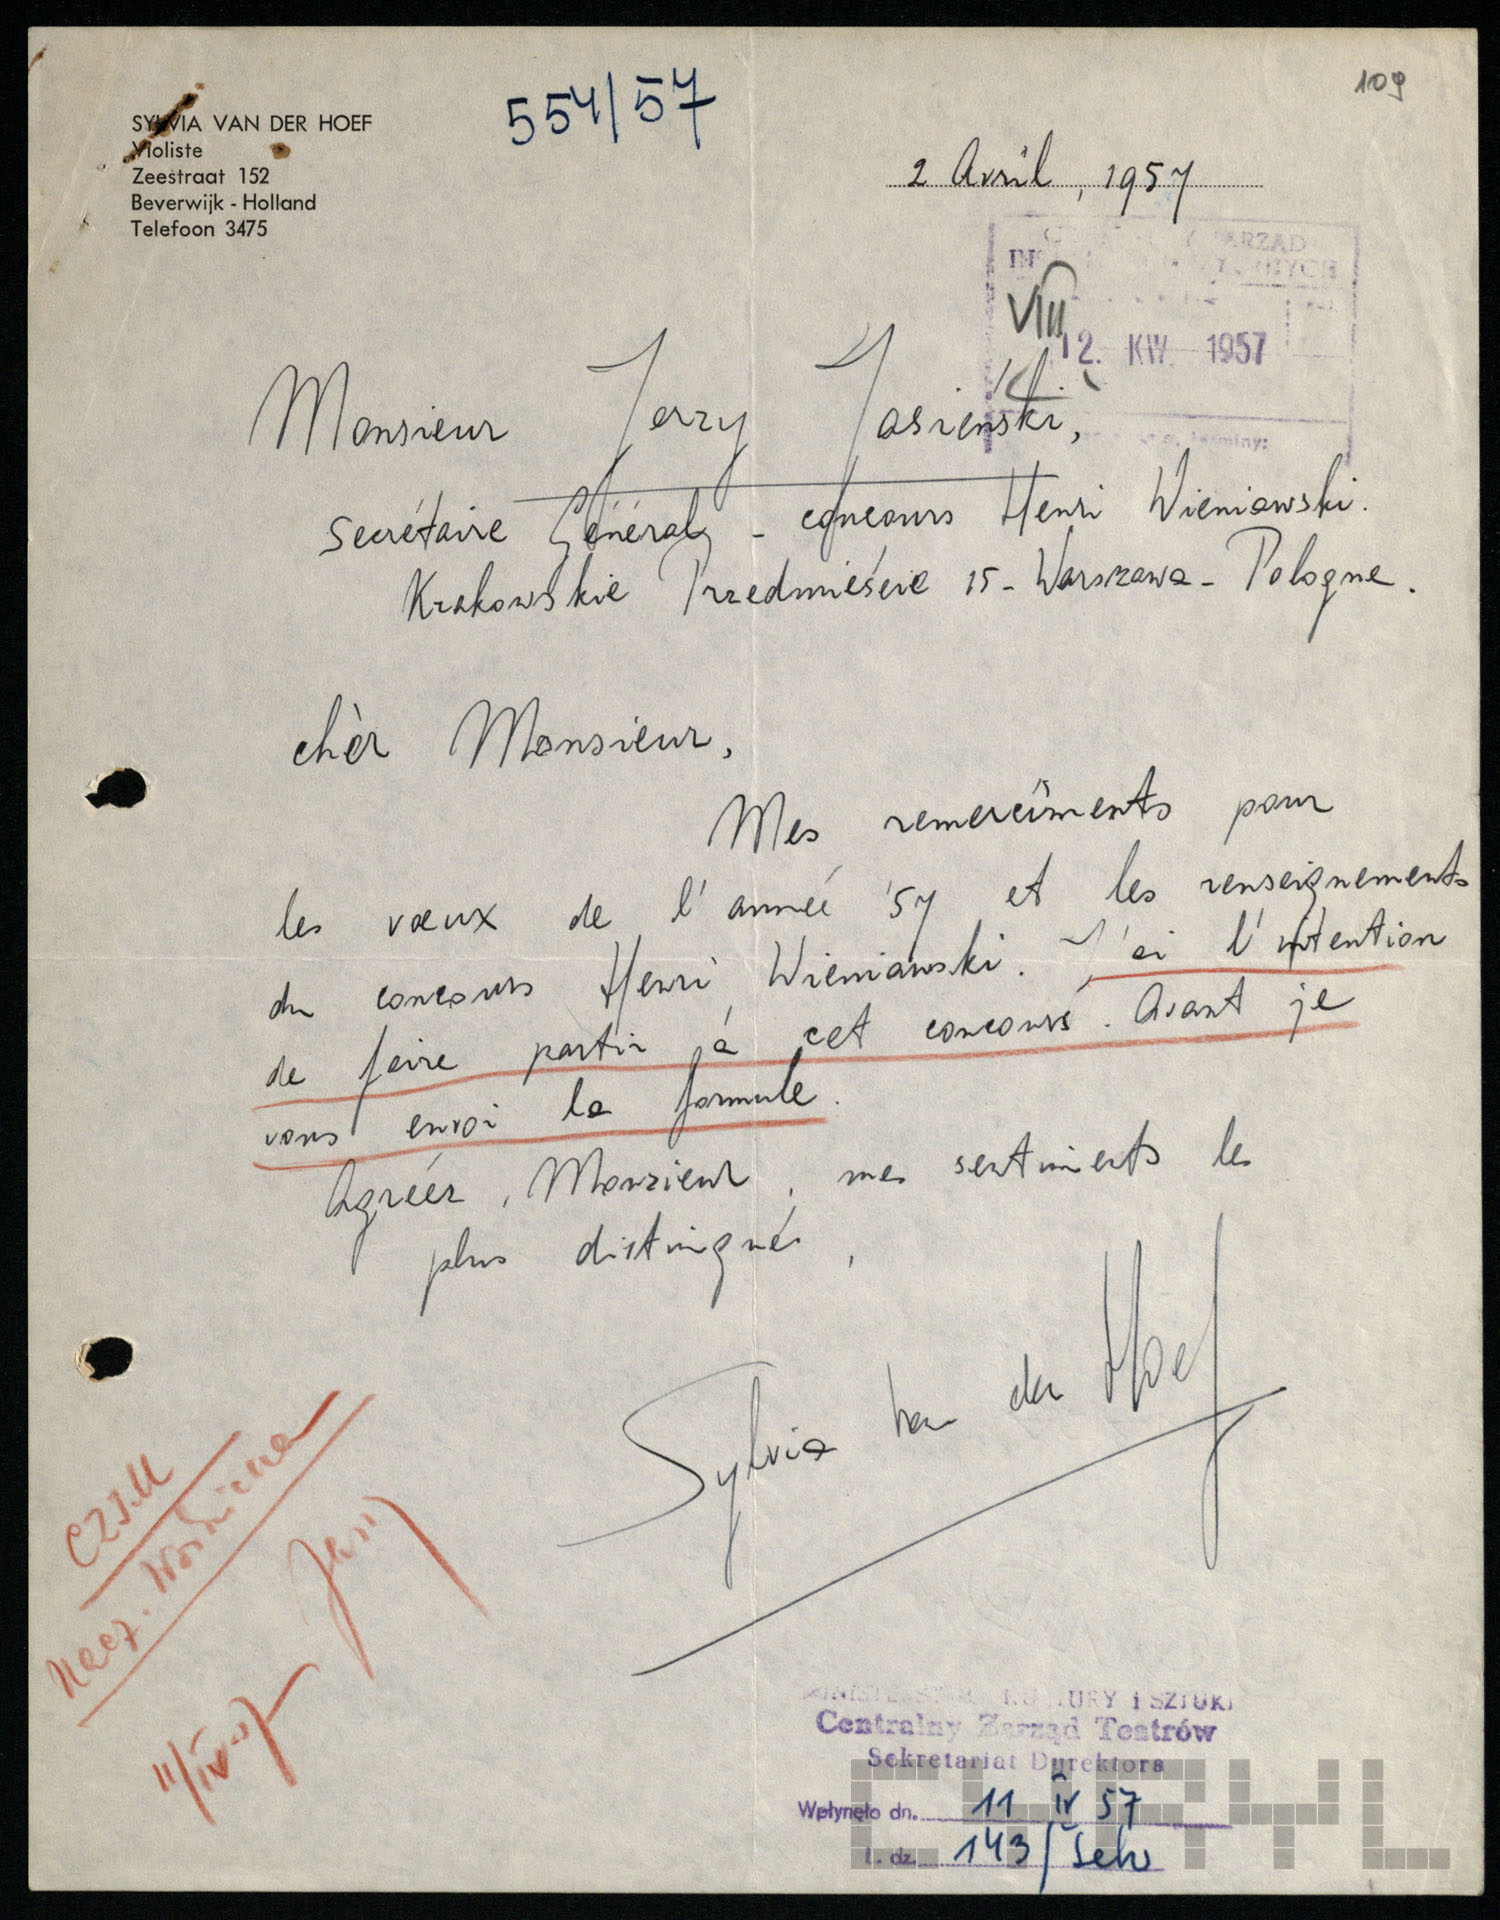 109
554/57
SYLVIA VAN DER HOEF
Violiste
Zeestraat 152
Beverwijk - Holland
Telefoon 3475
2 Avril, 1957
VIII
12. KW. 1957
Monsieur Jerzy Jasieński,
Secrétaire Général - concours Henri Wieniawski.
Krakowskie Przedmieście 15 - Warszawa - Pologne.
chèr Monsieur,
Mes remercîments pour
les vœux de l'année '57 et les renseignements
du concours Henri Wieniawski. J'ai l'intention
de faire partir à cet concours. Avant je
vous envoi la formule.
Agréér, Monsieur, mes sentiments les
plus distingués,
Sylvia van der Hoef
CZIM
Nacz.
11/IV 57
MINISTERSTWO KULTURY I SZTUKI
Centralny Zarząd Teatrów
Sekretariat Dyrektora
Wpłynęło dn. 11 IV 57
l. dz. 143/Sekr
CYRYL